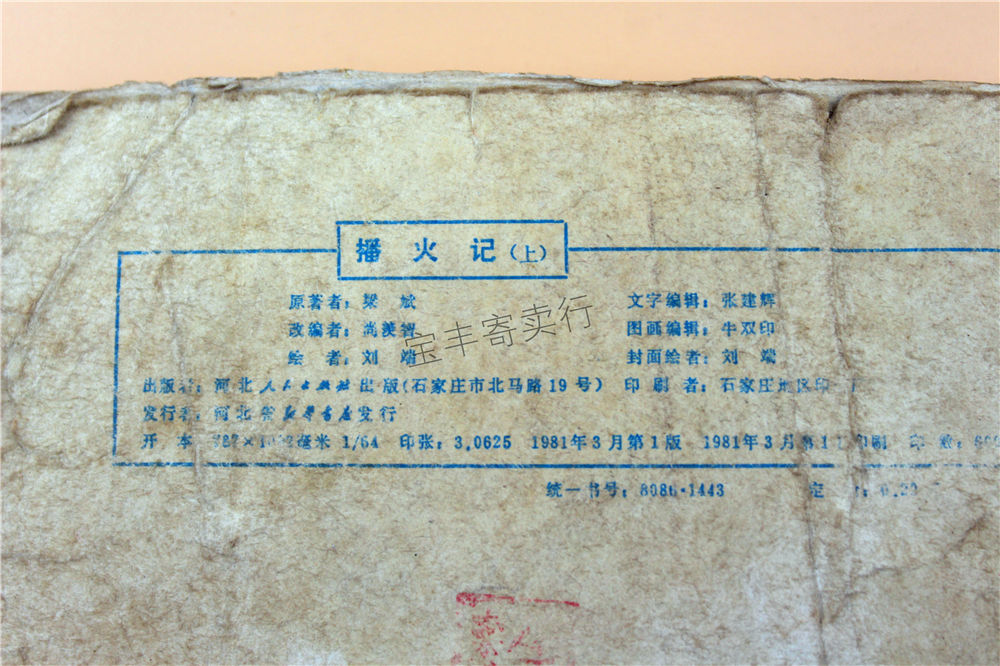 播火记(上)
原著者：梁斌 文字编辑：张建辉
改编者：尚羡智 图画编辑：牛双印
绘者：刘端 封面绘者：刘端
出版者：河北人民出版社出版(石家庄市北马路19号) 印刷者：石家庄地区印
发行者：河北省新华书店发行
开本 787×1092毫米 1/64 印张：3.0625 1981年3月第1版 1981年3月第1 印刷 印数：
统一书号：8086·1443 定 ：0.20
宝丰寄卖行